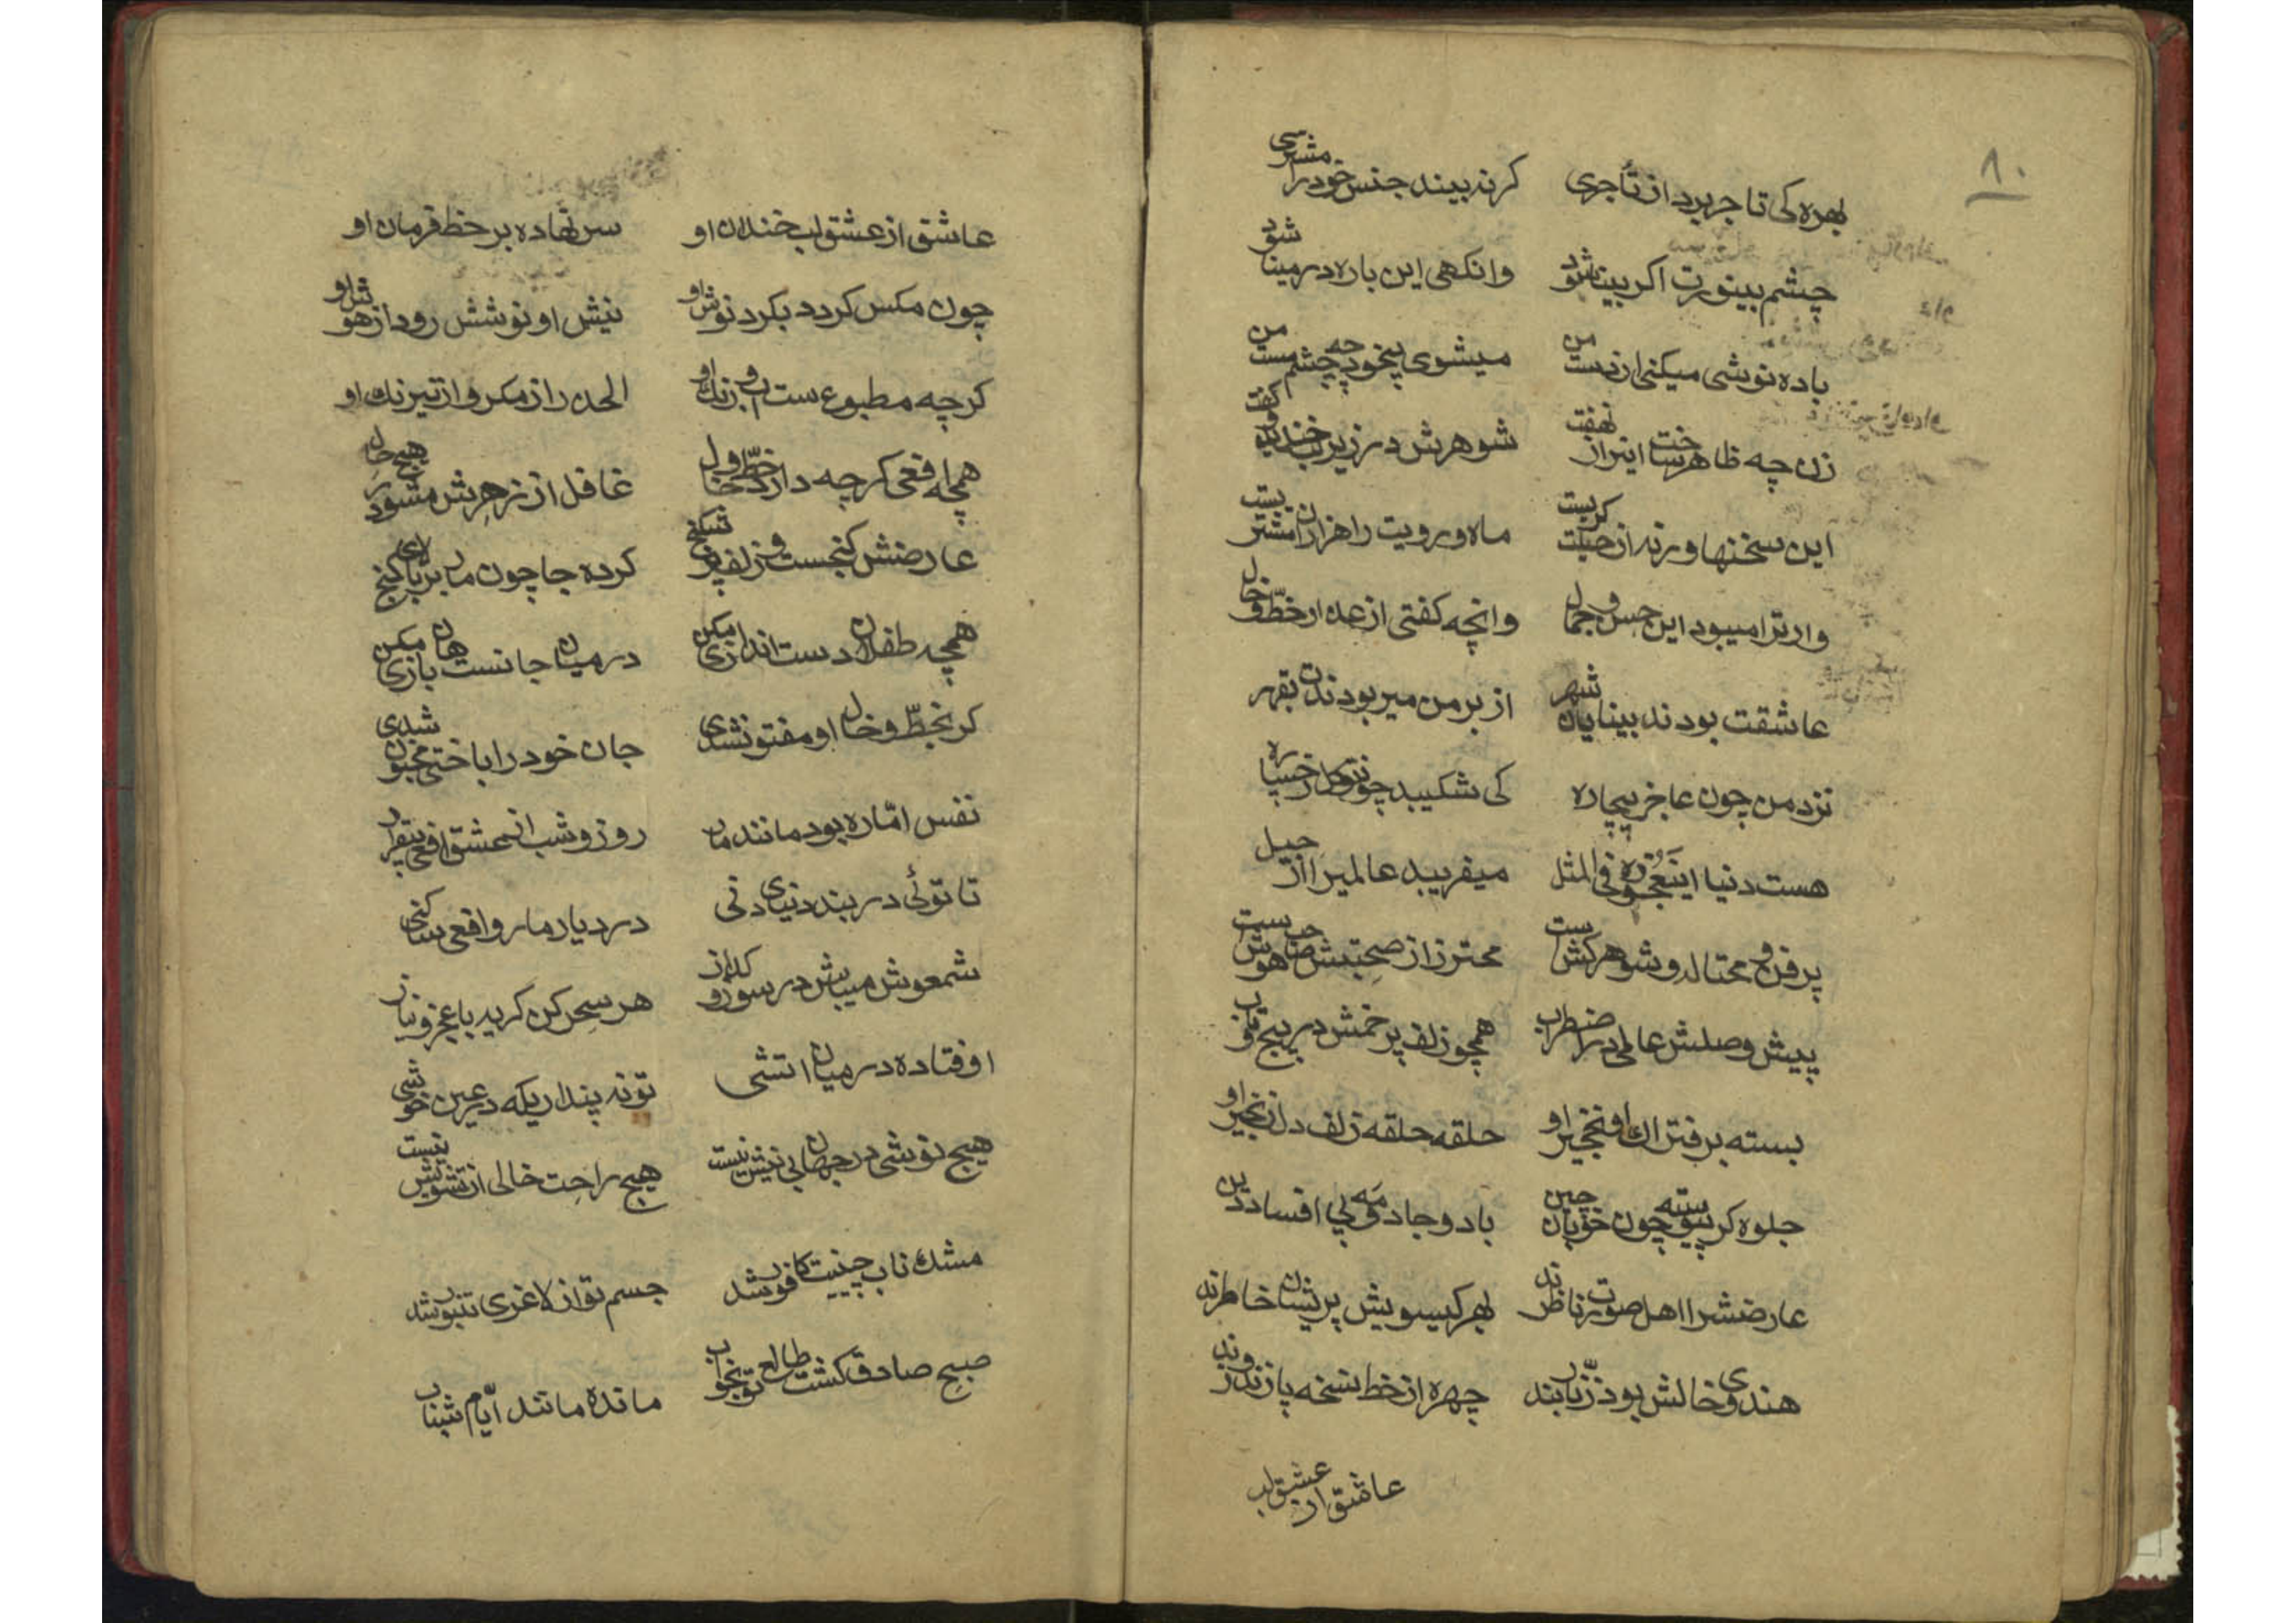 ۸۰
بهره کی تاجر برد از تاجری کرنه بیند جنس خود را مشتری
چشم بینورت اکر بینا شود وانکهی این باره در مینا شود
باده نوشی میکنی از دست من میشوی بیخود چه چشم مست من
زن چه ظاهر ساخت این راز نهفت شوهرش در زیر لب خندید و کفت
این سخنها ورنه از حیلت کریست ماه رویت را هزاران مشتریست
وار ترا میبود این حسن و جمال وانچه کفتی از عذار خطّ و خال
عاشقت بودند بینایان شهر از بر من میربودندت بقهر
نزد من چون عاجز بیچاره کی شکیبد چون تو مه رخساره
هست دنیا این عجوزه فی المثل میفریبد عالمیرا از حیل
پر فن و محتاله و شوهرکش ست محترز از صحبتش صاحب هش ست
پیش وصلش عالمی در اضطراب همچو زلف پر خمش در پیچ و تاب
بسته بر فتراک او نخجیر او حلقه حلقه زلف دل زنجیر او
جلوه کر پیوسته چون خوبان چین باد و جادو مه پی افساد دین
عارضش را اهل صورت ناظرند بهر کیسویش پریشان خاطرند
هندوی خالش بود زنّار بند چهره از خط نسخه پازند و زند
عاشق از عشق لب
عاشق از عشق لب خندان او سر نهاده بر خط فرمان او
چون مکس کردد بکرد نوش او نیش او نوشش رود از هوش او
کرچه مطبوع ست آب و رنک او الحذر از مکر و از نیرنک او
همچه افعی کرچه دارد خطّ و خال غافل از زهرش مشو در هیچ حال
عارضش کنجست و زلف پر شکنج کرده جا چون مار بر بالای کنج
همچه طفلان دست اندازی مکن در میان جانست هان بازی مکن
کر بخطّ و خال او مفتون شدی جان خود را باختی مجنون شدی
نفس امّاره بود مانند مار روز و شب از عشق افعی بیقرار
تا توئی در بند دنیای دنی در دیار مار و افعی ساکنی
شمعوش میباش در سوز و کداز هر سحر کن کریه با عجز و نیاز
اوفتاده در میان اتشی تو نه پنداریکه در عین خوشی
هیچ نوشی در جهان بی نیش نیست هیچ راحت خالی از تشویش نیست
مشک ناب چینیت کافور شد جسم تو از لاغری تنبور شد
صبح صادق کشت طالع تو بخواب مانده مانند ایّام شباب